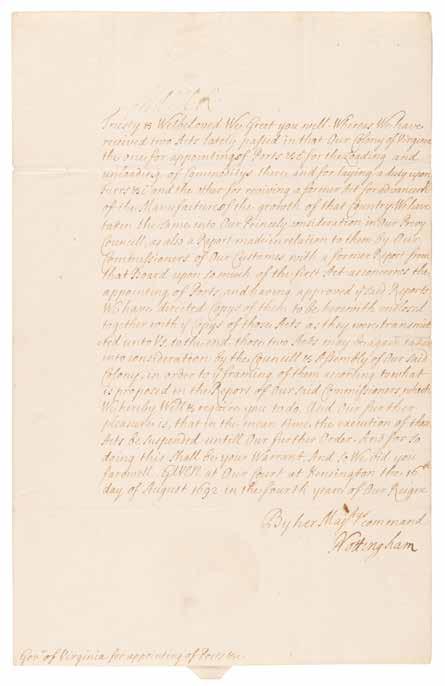 Trusty & Welbeloved We Greet you well. Whereas We have
received two Acts lately passed in that Our Colony of Virginia
the one for appointing of Ports &c for the Loading and
unloading of Commoditys there and for laying a duty upon
Furrs &c and the other for reviving a former Act for advancem.t
of the Manufacture of the growth of that Country We have
taken the same into Our Princely consideration in Our Privy
Councill, as also a Report made in relation to them by Our
Commissioners of Our Customes with a former Report from
that Board upon so much of the first Act as concernes the
appointing of Ports, and having approved y.e said Reports
We have directed Copys of them to be herewith enclosed
together with y.e Copys of those Acts as they were transmit=
ted unto Us to the end those two Acts may be again taken
into consideration by the Councill & Assembly of Our said
Colony, in order to y.e framing of them according to what
is proposed in the Report of Our said Commissioners which
We hereby Will & require you to do. And Our further
pleasure is, that in the mean time the execution of those
Acts be suspended untill Our further Order. And for so
doing this shall be your Warrant. And so We bid you
farewell. Given at Our Court at Kensington the 16th
day of August 1692 in the fourth year of Our Reigne
By her Ma.tys command
Nottingham
Gov.r of Virginia for appointing of Ports &c.